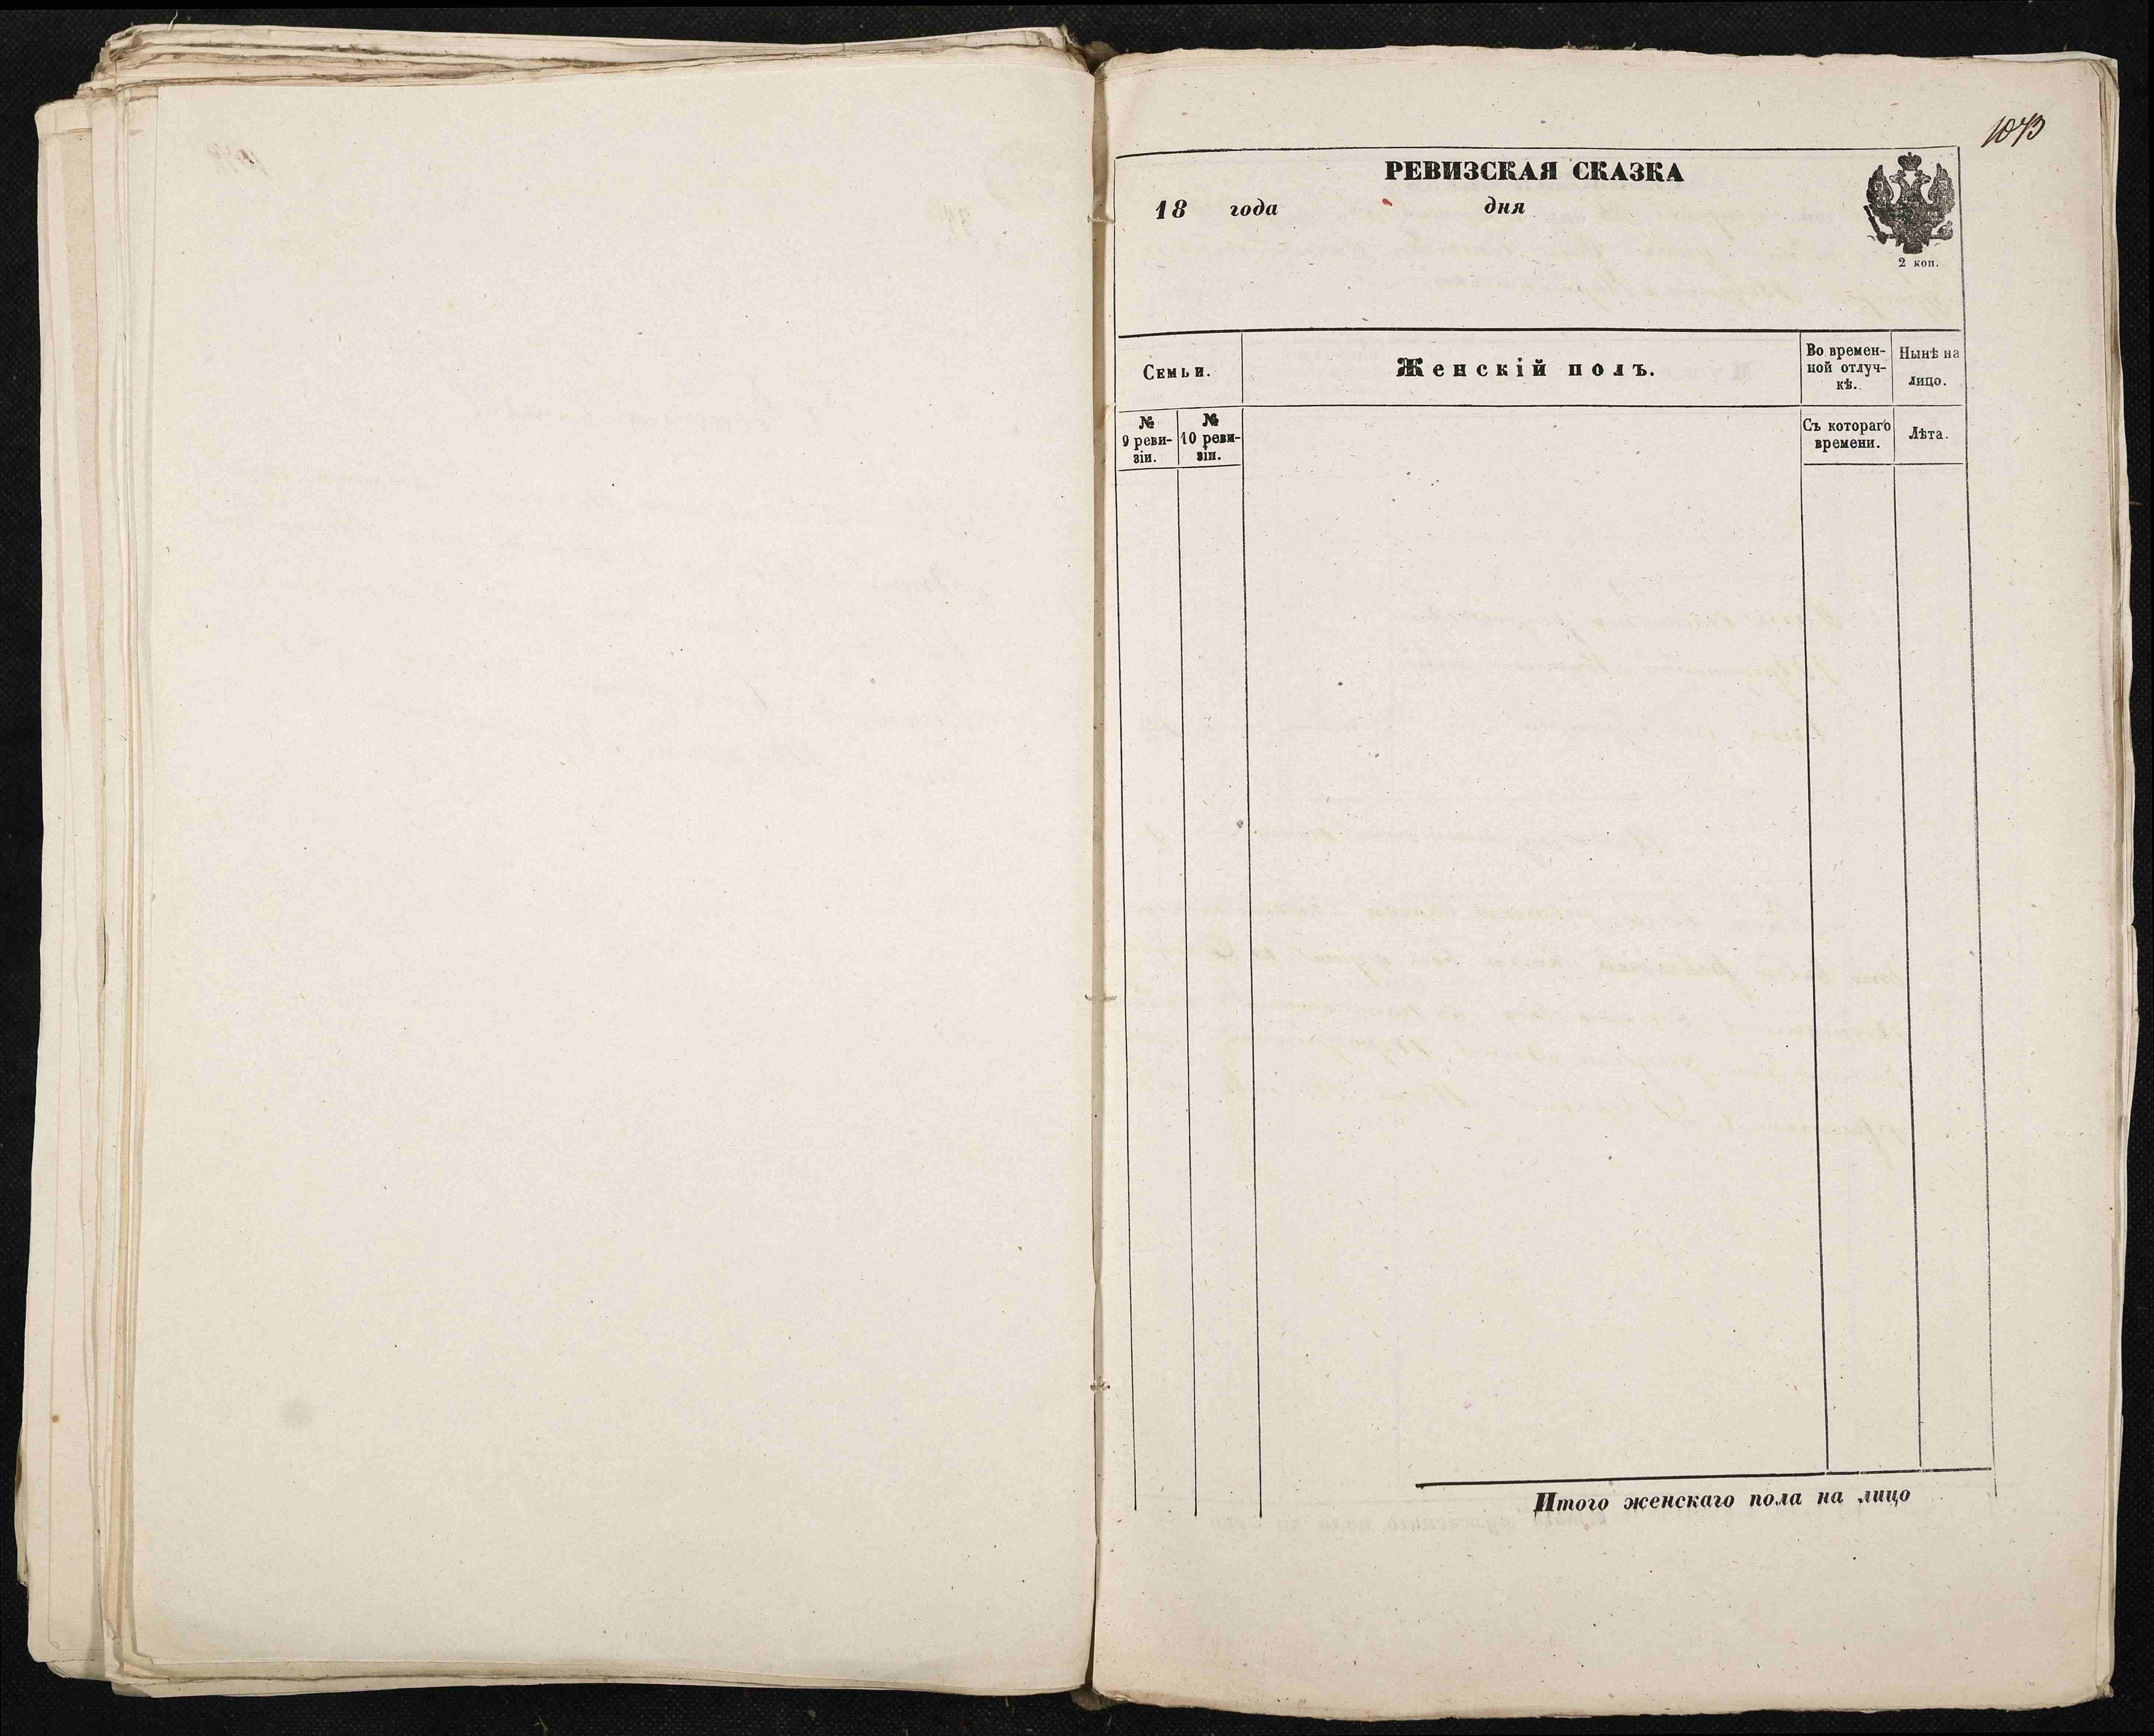 1073
РЕВИЗСКАЯ СКАЗКА
18 года дня
2 коп.
Семьи.
Женскій полъ.
Во времен-
ной отлуч-
кѣ.
Нынѣ на
лицо.
№
9 реви-
зіи.
№
10 реви-
зіи.
Съ котораго
времени.
Лѣта.
Итого женскаго пола на лицо